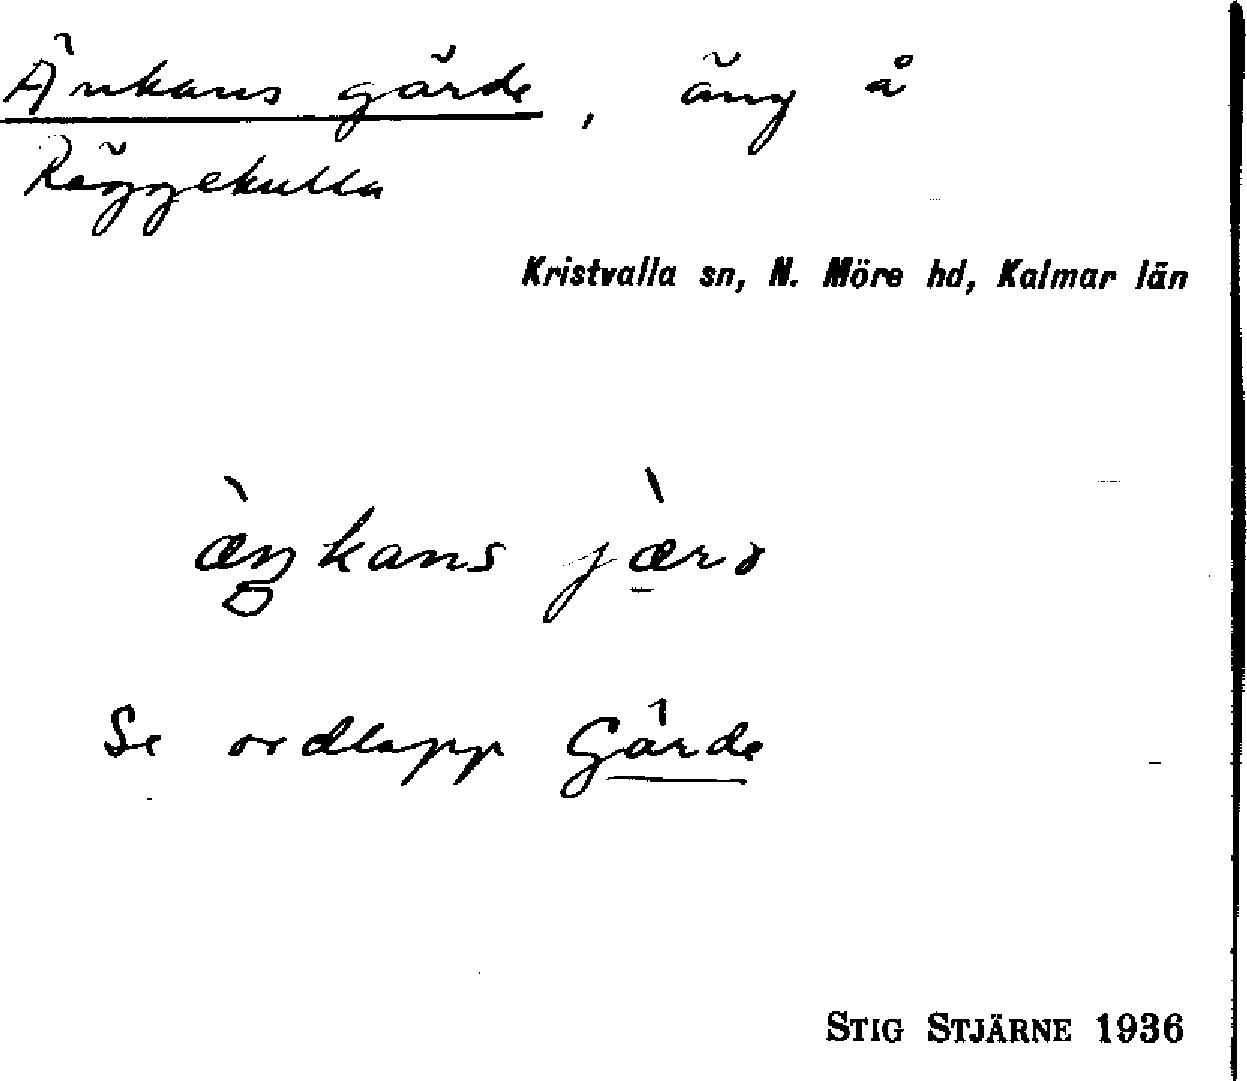 Änkans gärde, äng å
Röggekulla
Kristvalla sn, N. Möre hd, Kalmar län
Se ordlapp Gärde
STIG STJÄRNE 1936